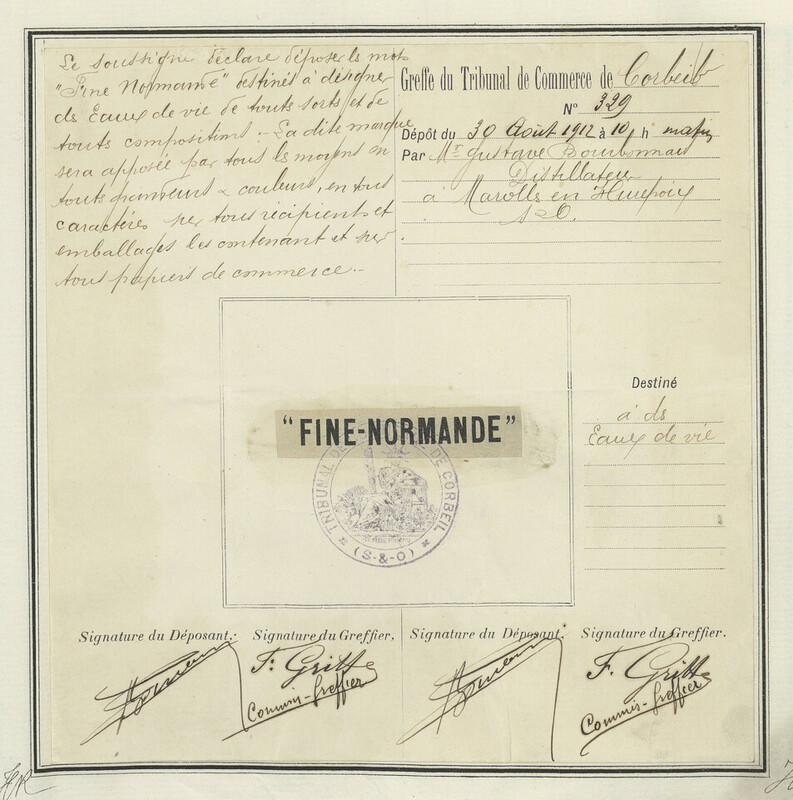 Le soussigné déclare déposer les mots
"Fine Normande" destinés à désigner
ds Eaux de vie de touts sorts et de
touts compositions. La dite marque
sera apposée par tous les moyens en
touts grandeurs & couleurs, en tous
caractéres sur tous récipients et
emballages les contenant et sur
tous papiers de commerce.
Greffe du Tribunal de Commerce de Corbeil
N° 329
Dépôt du 30 Août 1912 à 10 h matin
Par Mr Gustave Bourbonnais
Distillateur
à Marolls en Hurepoix
S&O.
Destiné
à ds
Eaux de vie
"FINE-NORMANDE"
TRIBUNAL DE DE CORBEIL
(S-&-O)
Signature du Déposant. Signature du Greffier. Signature du Déposant. Signature du Greffier.
F. Gritt F. Gritt
Commis-Greffier Commis-Greffier
HR